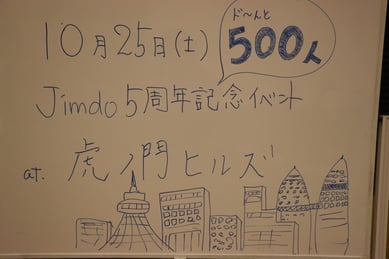 10月25日(土)
ド〜んと
500人
Jimdo 5周年記念イベント
at. 虎ノ門ヒルズ